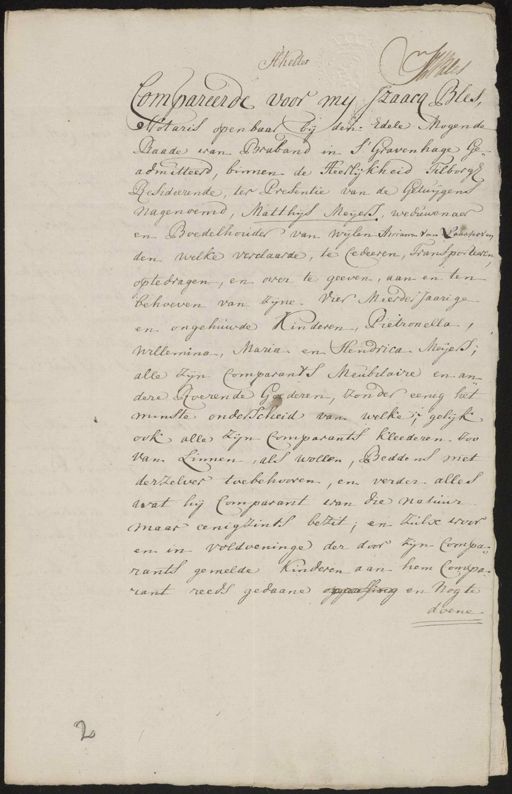 Compareerde voor my Izaacq Bles,
Notaris openbaar bij den Edele Mogende
Raade van Braband in S'Gravenhage Ge-
admitteerd, binnen de Heerlijkheid Tilborg &
Resideerende, ter Presentie van de Getuygens
nagenoemd, Matthijs Meijers, weduwenaer
en Boedelhouder van wijlen Adriana van
den welke verclaarde, te Cedeeren, Transporteren,
optedragen, en over te geeven, aan en ten
behoeven van zyne Vier Meerderjaarige
en ongehuwde Kinderen, Pietronella,
Willemina, Maria en Hendrica Meijers,
alle zijn Comparants Meubilaire en an-
dere Roerende Goederen, zonder eenig het
minste onderscheid van welke; gelijk
ook alle zijn Comparants kleederen zoo
van Linnen, als wollen, Beddens met
derzelver toebehooren, en verder alles
wat hij Comparant van die natuur
maar eenigzints bezit; en zulx voor
en in voldoeninge der door zijn Compa-
rants gemelde Kinderen aan hem Compa-
rant reets gedaane oppassing en nog te
doene
2